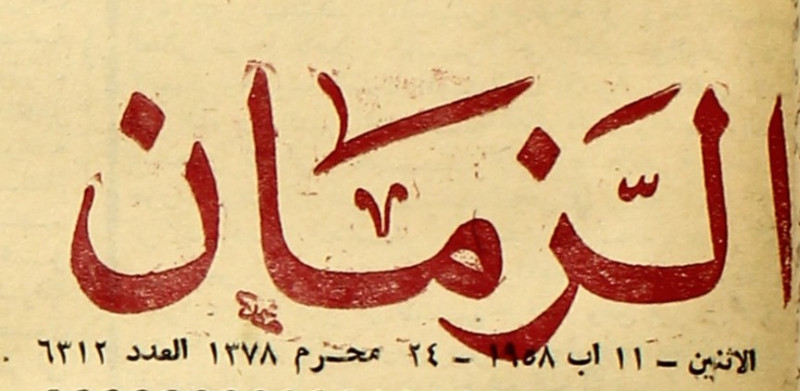 الزمان
الاثنين – ١١ اب ١٩٥٨ – ٢٤ محرم ١٣٧٨ العدد ٦٣١٢